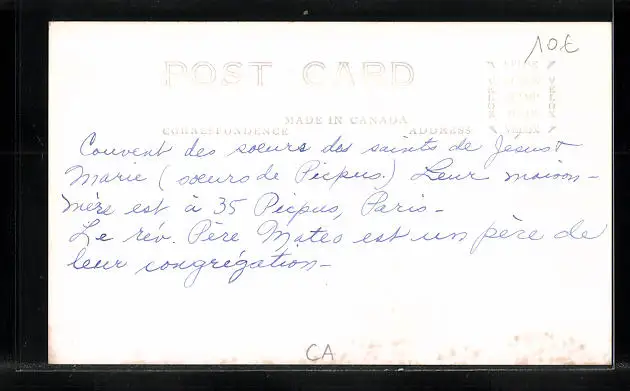 10€
POST CARD
MADE IN CANADA
CORRESPONDENCE ADDRESS
VELOX VELOX
PLACE STAMP HERE
Couvent des soeurs des saints de Jesus &
Marie (soeurs de Picpus.) Leur maison-
mère est à 35 Picpus, Paris-
Le rév. Père Mateo est un père de
leur congrégation-
CA